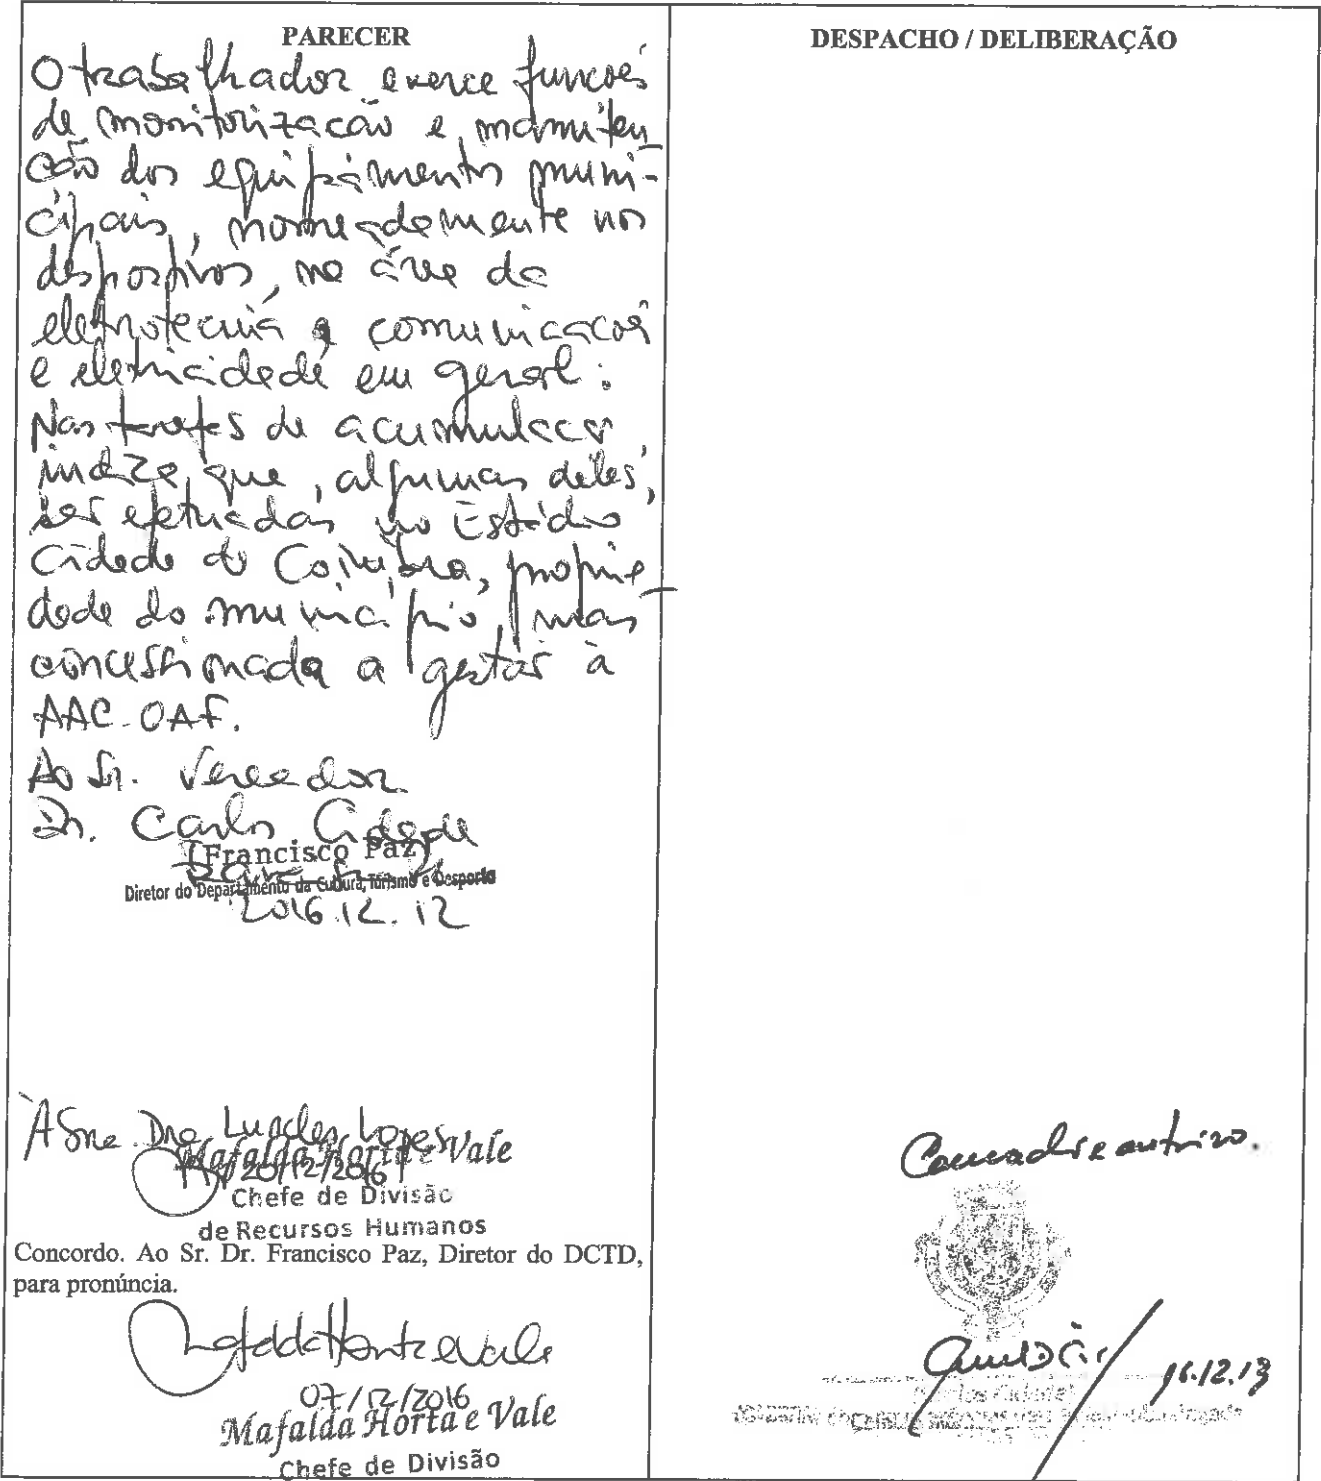 PARECER
O trabalhador exerce funções
de monitorização e manuten_
ção dos equipamentos muni-
cipais, nomeadamente nos
desportivos, na área da
eletrotecnia e comunicações
e eletricidade em geral.
Nas tarefas de acumulação
indica que, algumas delas,
são efetuadas no Estádio
Cidade de Coimbra, proprie_
dade do município, mas
concessionada a gestão à
AAC-OAF.
Ao Sr. Vereador
Dr. Carlos Cidade
(Francisco Paz)
Diretor do Departamento da Cultura, Turismo e Desporto
2016.12.12
À Sra. Dra Lurdes Lopes
Mafalda Horta e Vale
20/12/2016
Chefe de Divisão
de Recursos Humanos
Concordo. Ao Sr. Dr. Francisco Paz, Diretor do DCTD,
para pronúncia.
Mafalda Horta e Vale
07/12/2016
Mafalda Horta e Vale
Chefe de Divisão
DESPACHO / DELIBERAÇÃO
Concordo e autorizo.
16.12.13
(Carlos Cidade)